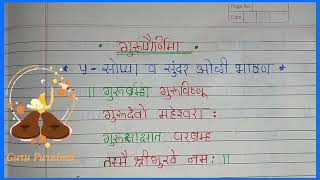 Page No.
Date
गुरुपौर्णिमा
* ५ - सोप्या व सुंदर ओळी भाषण *
॥ गुरुर्ब्रम्हा गुरुर्विष्णू
गुरुर्देवो महेश्वरा :
गुरुःसाक्षात परब्रम्ह
तस्मै श्रीगुरवे नमः ॥
Guru Purnima